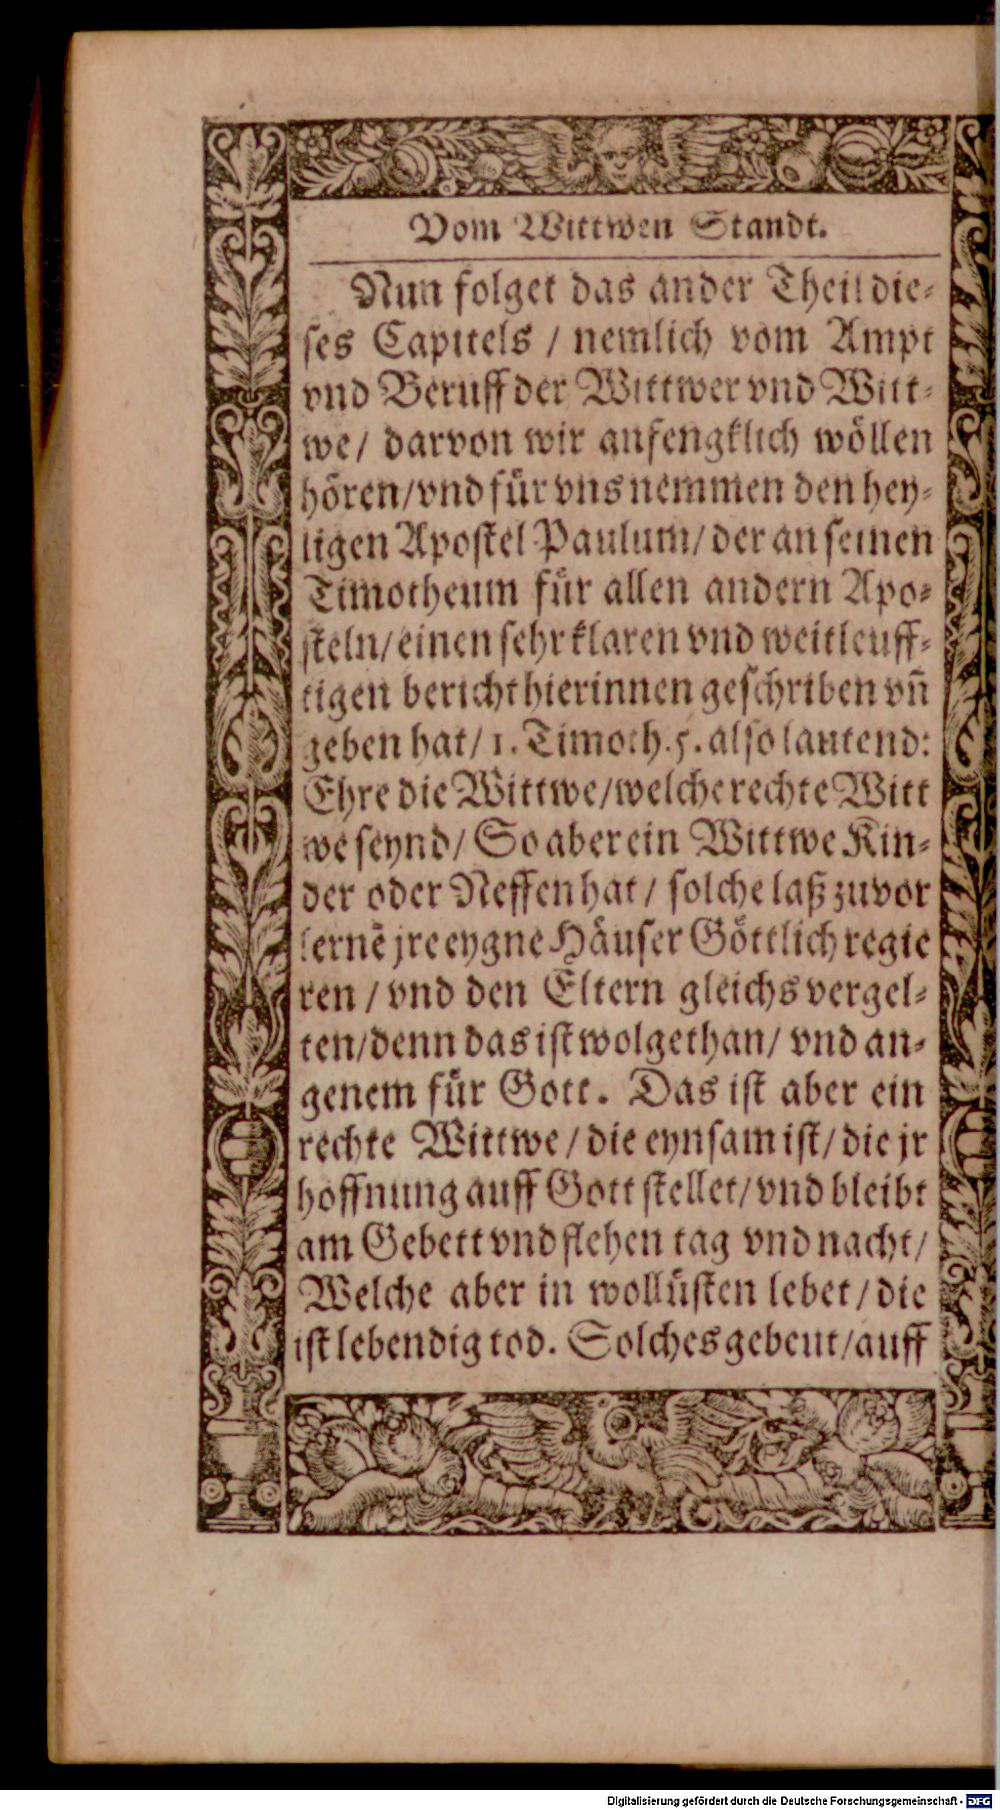 Vom Wittwen Standt.
Nun folget das ander Theil die-
ses Capitels / nemlich vom Ampt
vnd Beruff der Wittwer vnd Witt-
we / darvon wir anfengklich wöllen
hören / vnd für vns nemmen den hey-
ligen Apostel Paulum / der an seinen
Timotheum für allen andern Apo-
steln / einen sehr klaren vnd weitleuff-
tigen bericht hierinnen geschriben vñ
geben hat / 1. Timoth. 5. also lautend:
Ehre die Wittwe / welche rechte Witt
we seynd / So aber ein Wittwe Kin-
der oder Neffen hat / solche laß zuvor
lernẽ jre eygne Häuser Göttlich regie
ren / vnd den Eltern gleichs vergel-
ten / denn das ist wolgethan / vnd an-
genem für Gott. Das ist aber ein
rechte Wittwe / die eynsam ist / die jr
hoffnung auff Gott stellet / vnd bleibt
am Gebett vnd flehen tag vnd nacht /
Welche aber in wollüsten lebet / die
ist lebendig tod. Solches gebeut / auff
Digitalisierung gefördert durch die Deutsche Forschungsgemeinschaft - DFG